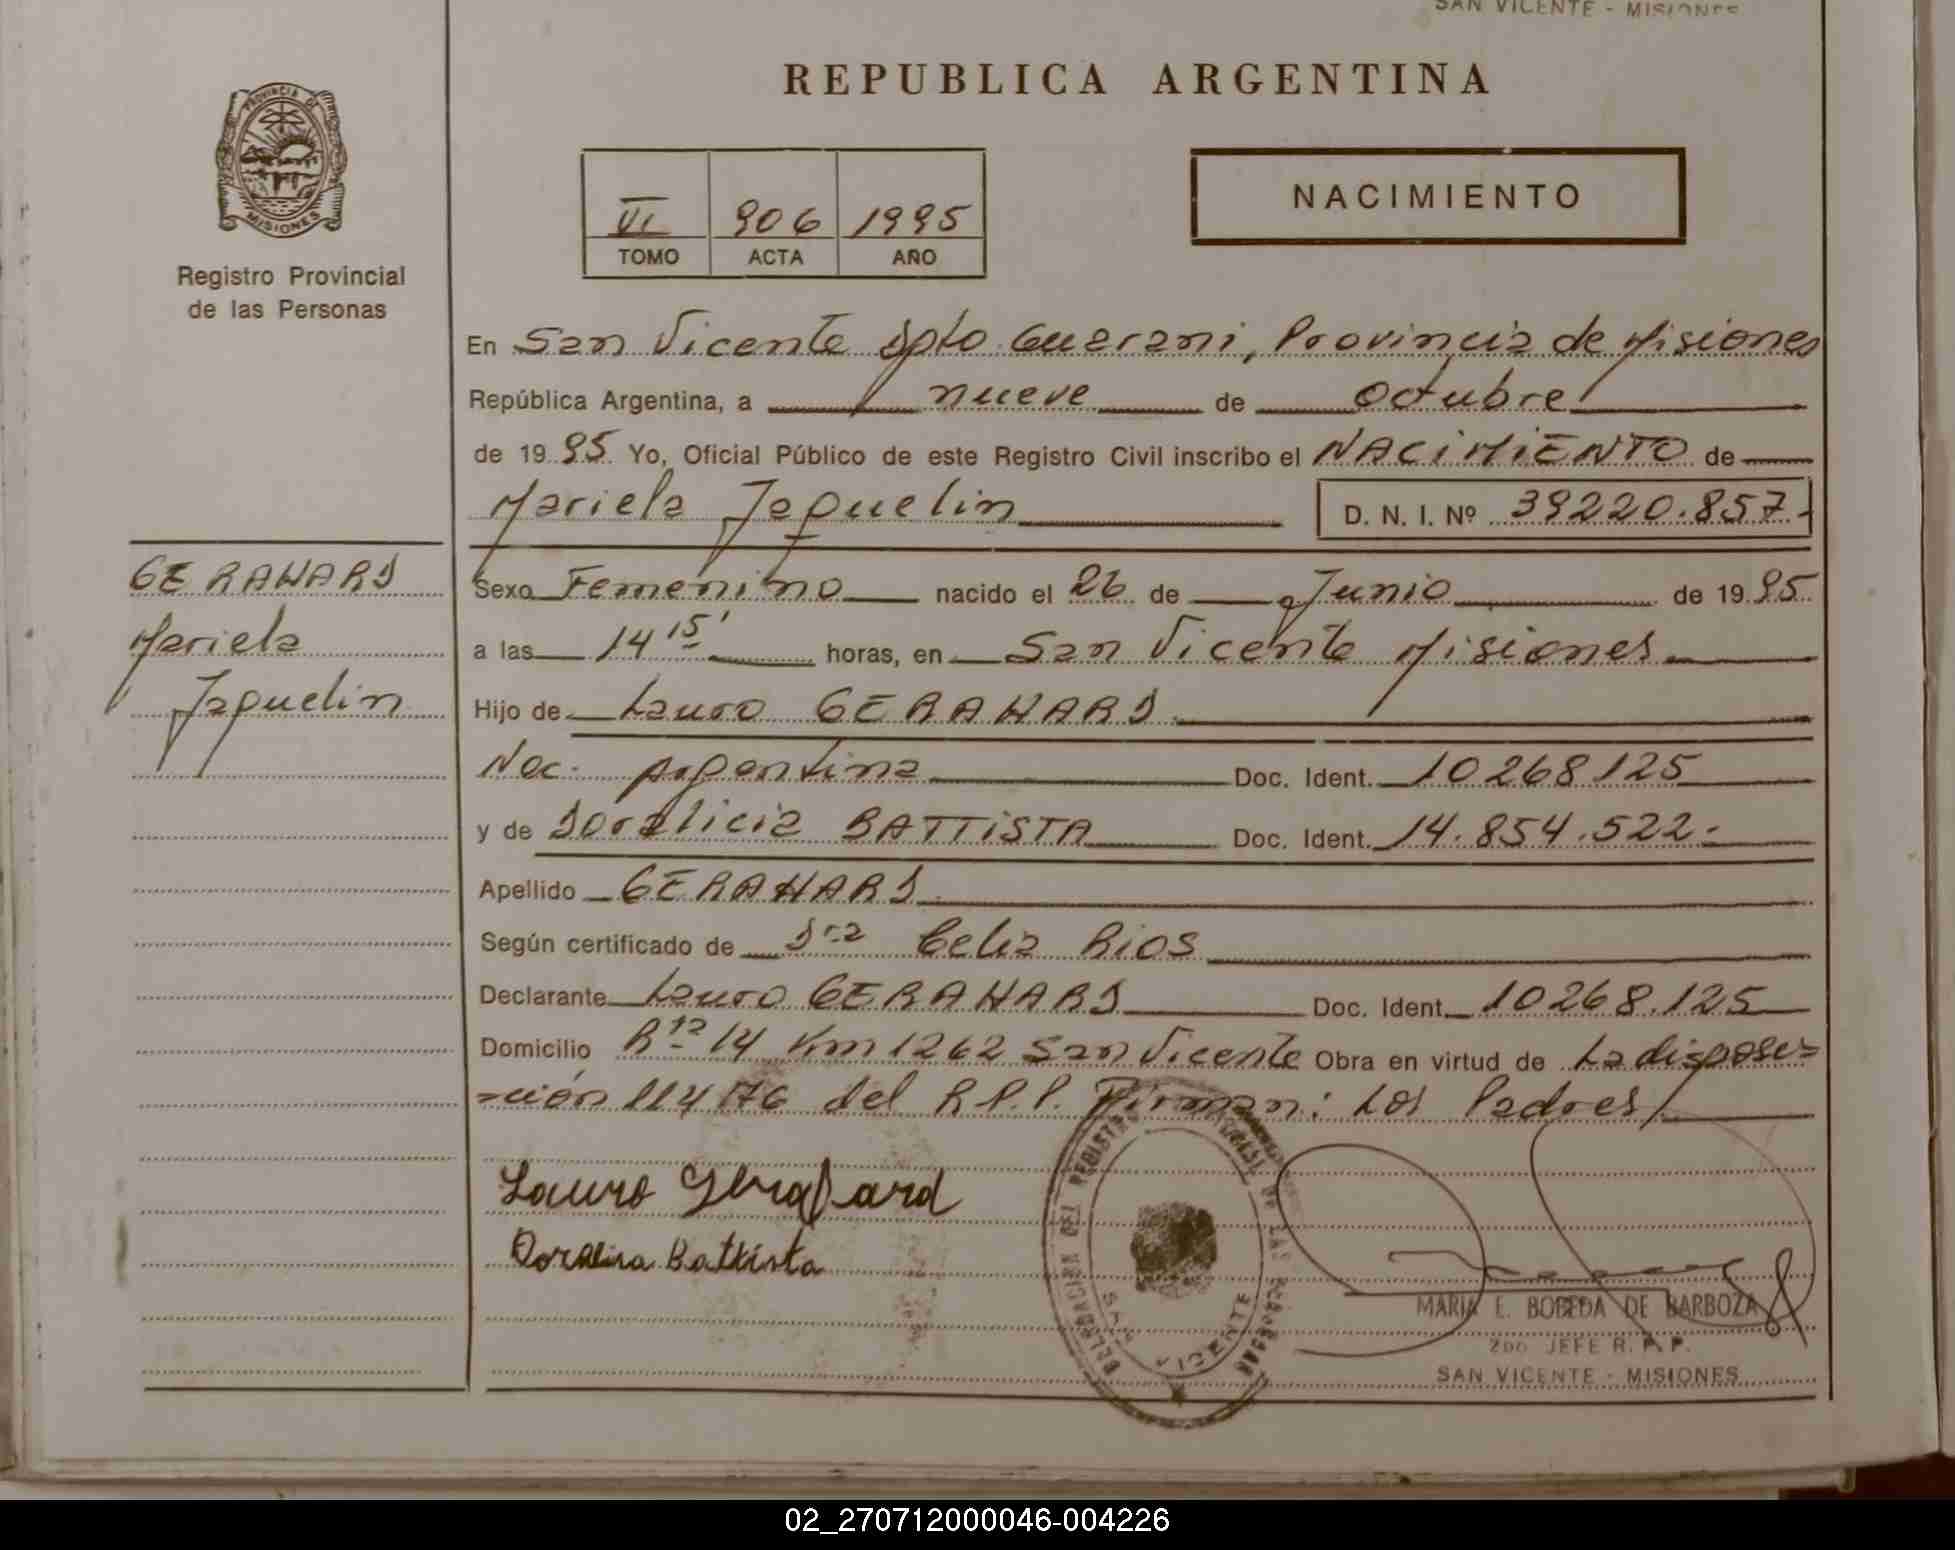 SAN VICENTE - MISIONES
REPUBLICA ARGENTINA
PROVINCIA DE
MISIONES
Registro Provincial
de las Personas
VI 906 1995
TOMO ACTA AÑO
NACIMIENTO
En San Vicente Dpto Guarani, Provincia de Misiones
República Argentina, a nueve de octubre
de 1995 Yo, Oficial Público de este Registro Civil inscribo el NACIMIENTO de
Mariela Jaquelin D. N. I. Nº 39220.857.-
GERAHARD
Mariela
Jaquelin
Sexo Femenino nacido el 26 de Junio de 1995
a las 14 15' horas, en San Vicente Misiones
Hijo de Lauro GERAHARD
Nac. Argentina Doc. Ident. 10268.125
y de Doralicia BATTISTA Doc. Ident. 14.854.522.-
Apellido GERAHARD
Según certificado de Dra Celia Rios
Declarante Lauro GERAHARD Doc. Ident. 10268.125
Domicilio Rta 14 Km 1262 San Vicente Obra en virtud de La disposi-
-ción 114/76 del R.P.P. Firman: Los Padres
Lauro Gerahard
Battista
DELEGACION DEL REGISTRO PROVINCIAL DE LAS PERSONAS
SAN VICENTE
MARIA E. BOBEDA DE BARBOZA
2DO JEFE R. P. P.
SAN VICENTE - MISIONES
02_270712000046-004226